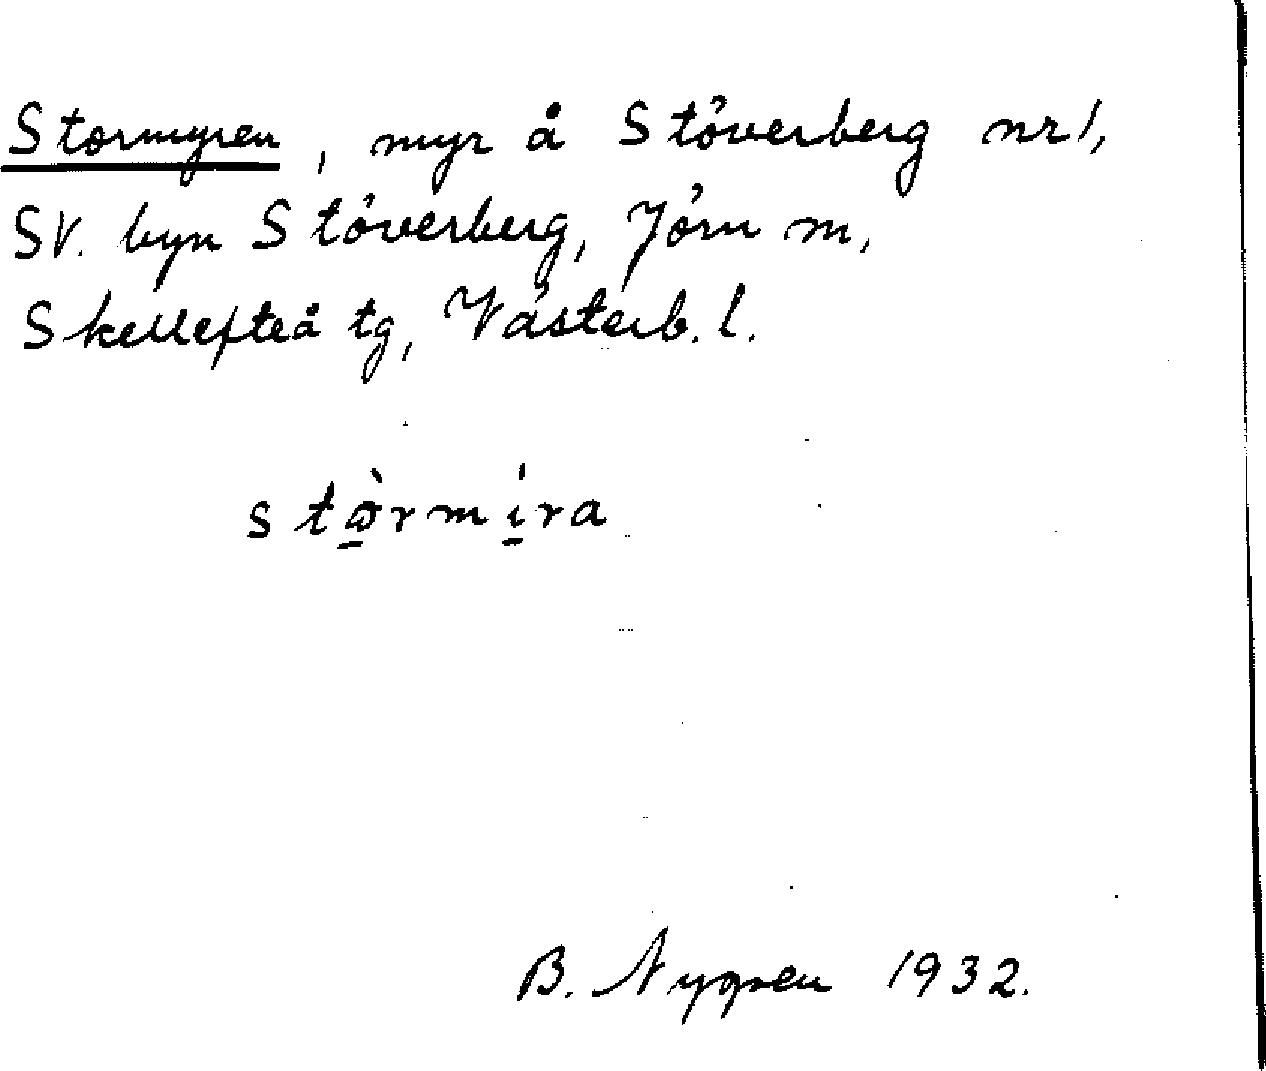 Stormyren, myr å Stöverberg nr 1,
SV. byn Stöverberg, Jörn sn,
Skellefteå tg, Västerb. l.
stὼ̱rmí̱ra
B. Nygren 1932.